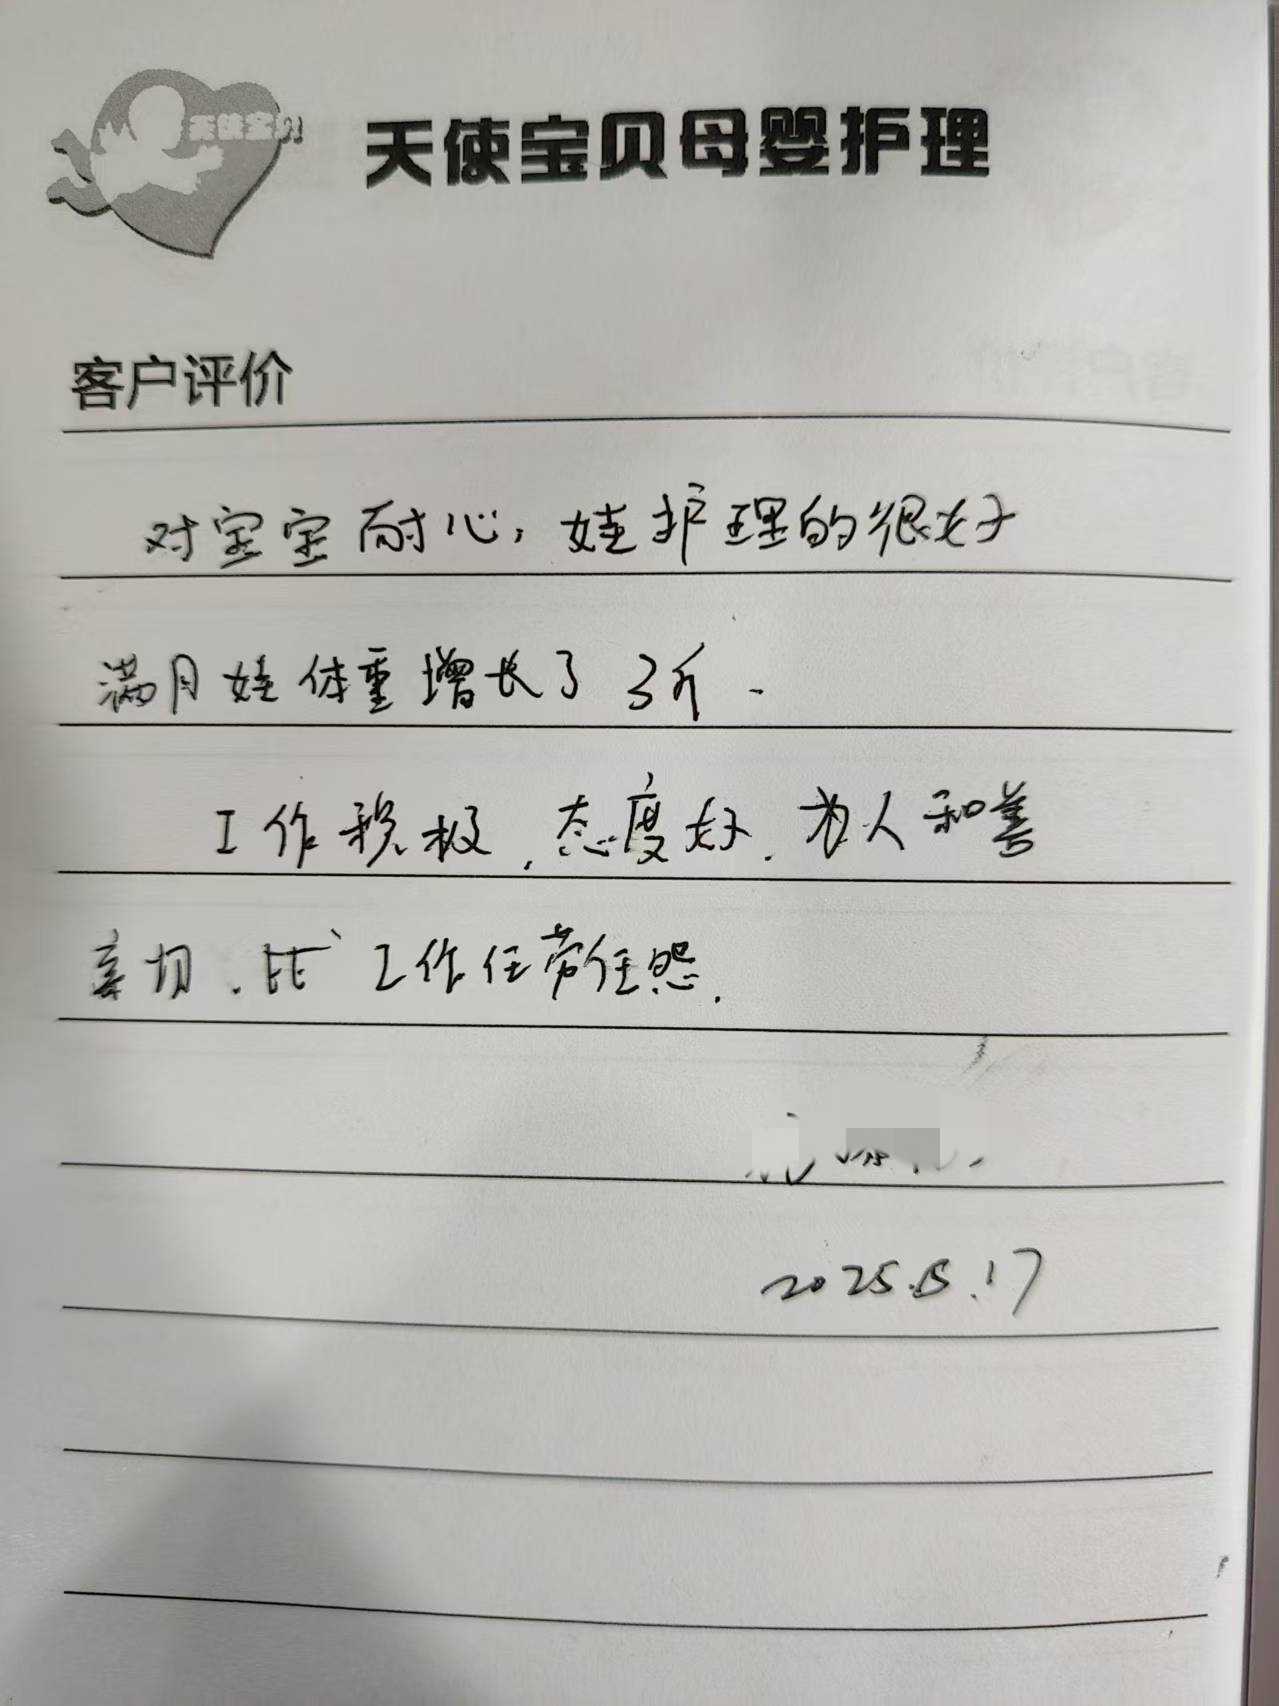 天使宝贝
天使宝贝母婴护理
客户评价
对宝宝耐心，娃护理的很好
满月娃体重增长了3斤.
工作积极，态度好.为人和善
亲切.工作任劳任怨.
2025.5.17